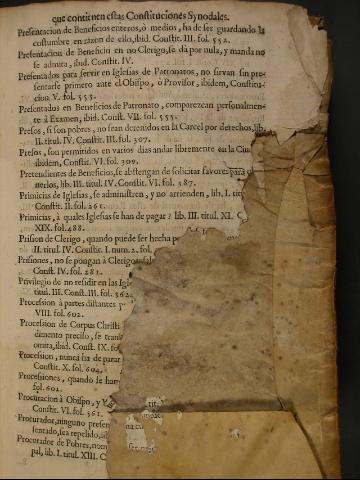 que contienen estas Constituciones Synodales.
Presentacion de Beneficios enteros, ò medios, ha de ser guardando la
costumbre en razon de ello, ibid. Constit. III. fol. 552.
Presentacion de Beneficio en no Clerigo, se dà por nula, y manda no
se admita, ibid. Constit. IV.
Presentados para servir en Iglesias de Patronatos, no sirvan sin pre-
sentarse primero ante el Obispo, ò Provisor, ibidem, Constitu-
cion V. fol. 553.
Presentados en Beneficios de Patronato, comparezcan personalmen-
te à Examen, ibid. Const. VII. fol. 553.
Presos, si son pobres, no sean detenidos en la Carcel por derechos, lib.
II. titul. IV. Constit. III. fol. 307.
Presos, son permitidos en varios dias andar libremente en la Ciu
ibidem, Constit. VI. fol. 309.
Pretendientes de Beneficios, se abstengan de solicitar favores para
nerlos, lib. III. titul. IV. Constit. VI. fol. 387.
Primicias de Iglesias, se administren, y no arrienden, lib. I. titu
Constit. II. fol. 261.
Primicias, à quales Iglesias se han de pagar? lib. III. titul. XI. C
XIX. fol. 488.
Prision de Clerigo, quando puede ser hecha po
II. titul. IV. Constit. I. num. 2. fol.
Prisiones, no se pongan à Clerigo
Const. IV. fol. 281.
Privilegio de no residir en las Igl
titul. III. Const. III. fol. 362
Procession à partes distantes p
VIII. fol. 602.
Procession de Corpus Christi
dimento preciso, se tran
omita, ibid. Constit. IX. fo
Procession, nunca sea de parar
Constit. X. fol. 604.
Processiones, quando se han
fol. 602.
Procuracion à Obispo, y
Constit. VI. fol. 561.
Procurador, ninguno presen
sentado, sea repelido, ib
Procurador de Pobres, nom
pal, lib. I. titul. XIII. C
tit.
na cu